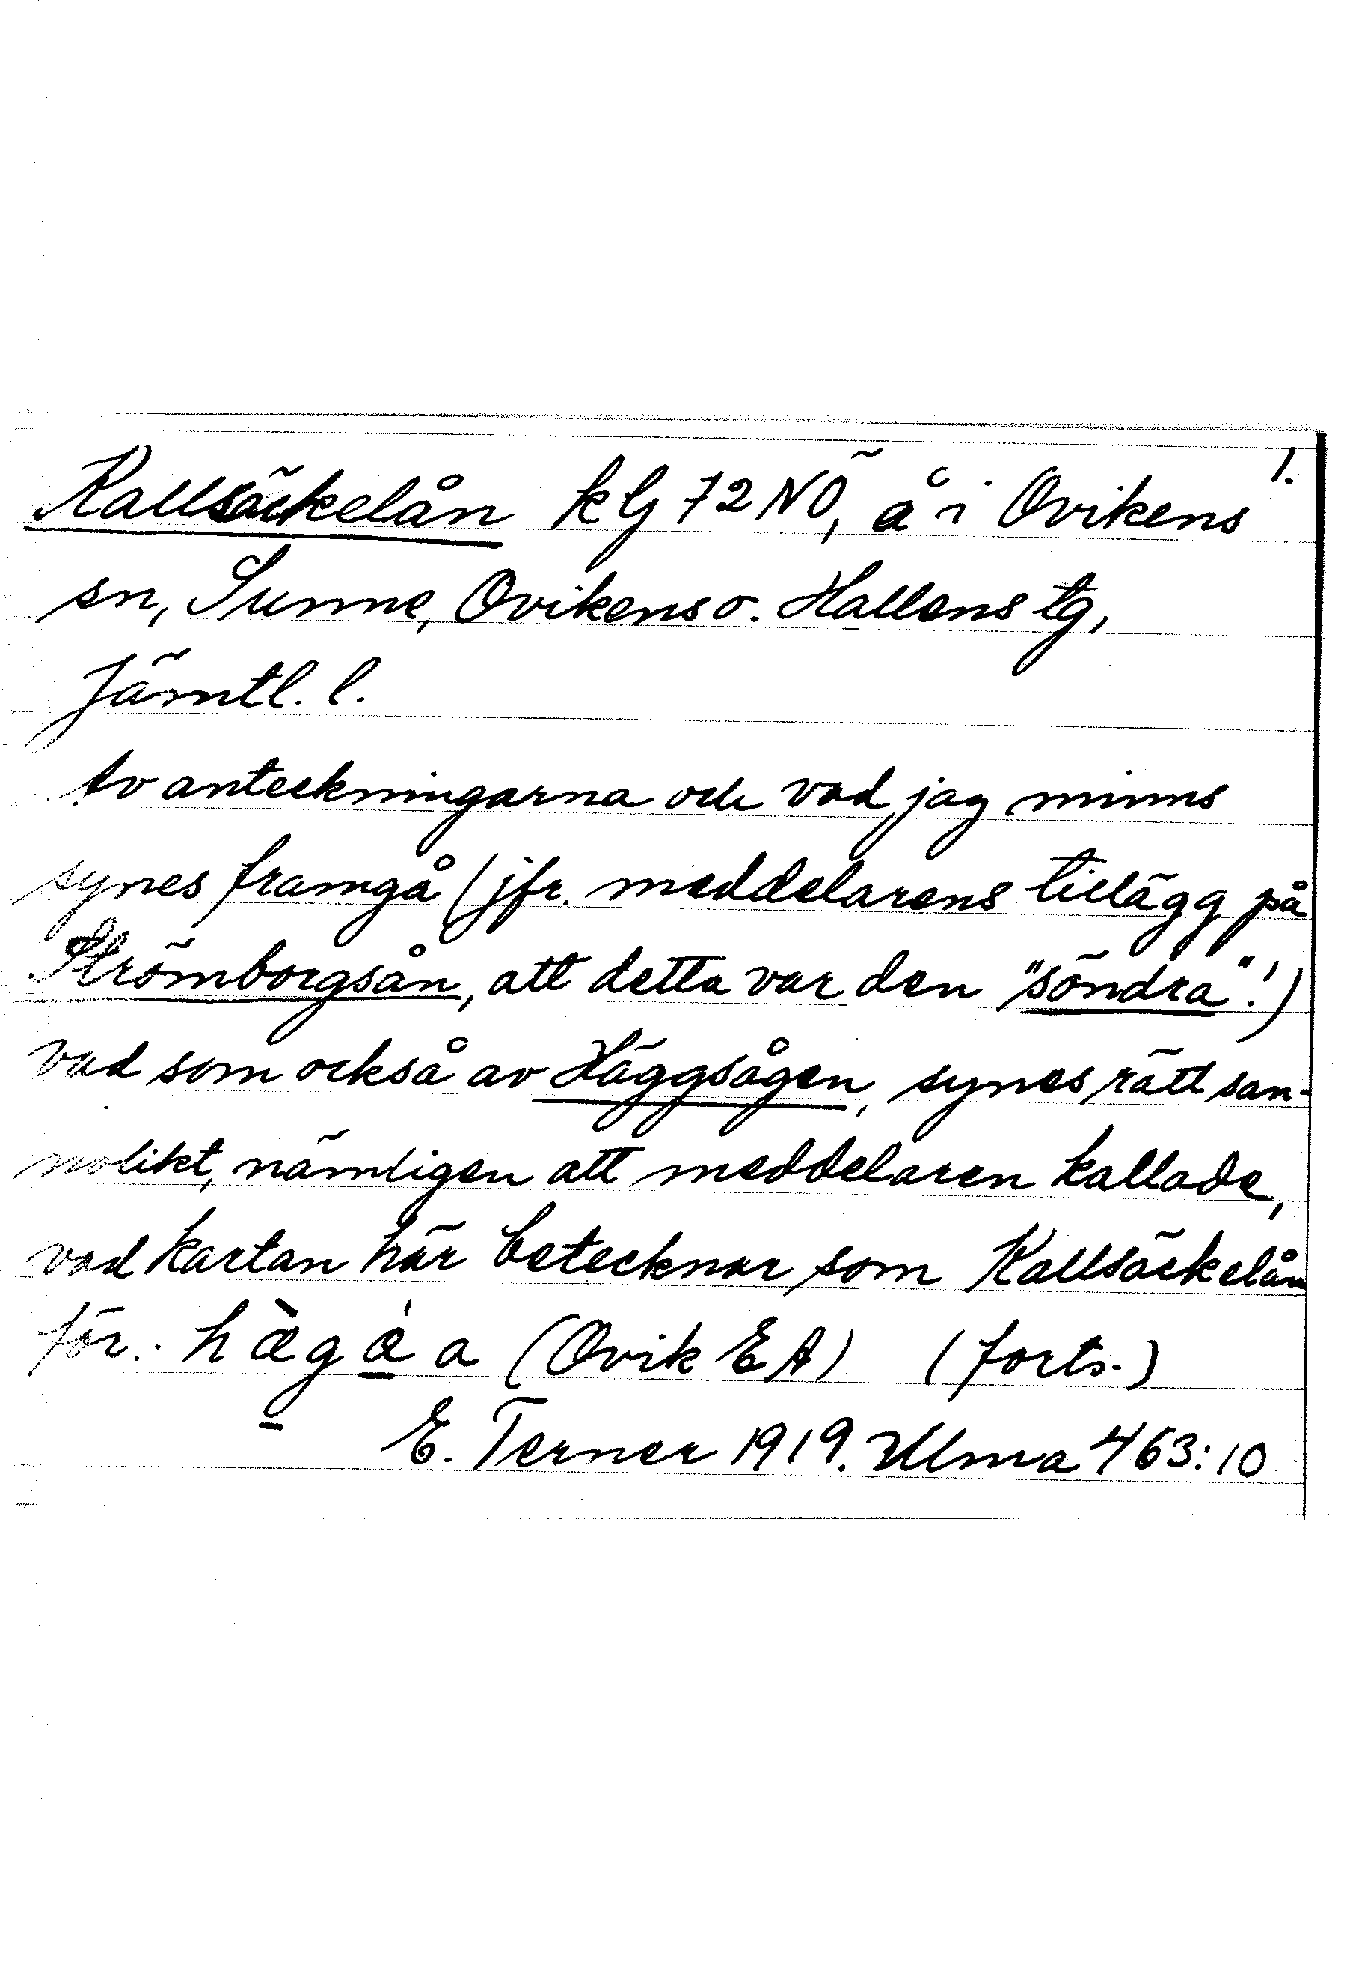 1.
Kallsäckelån kbl 72 NÖ, å i Ovikens
sn, Sunne, Ovikens o. Hallens tg,
Jämtl. l.
Av anteckningarna och vad jag minns
synes framgå (jfr. meddelarens tillägg på
Strömborgsån, att detta var den "söndra"!)
vad som också av Häggsågen, synes rätt san-
nolikt, nämligen att meddelaren kallade,
vad kartan här betecknar som Kallsäckelån
för: hæ̀gǽa (Ovik EA) (forts.)
E. Terner 1919. Ulma 463:10